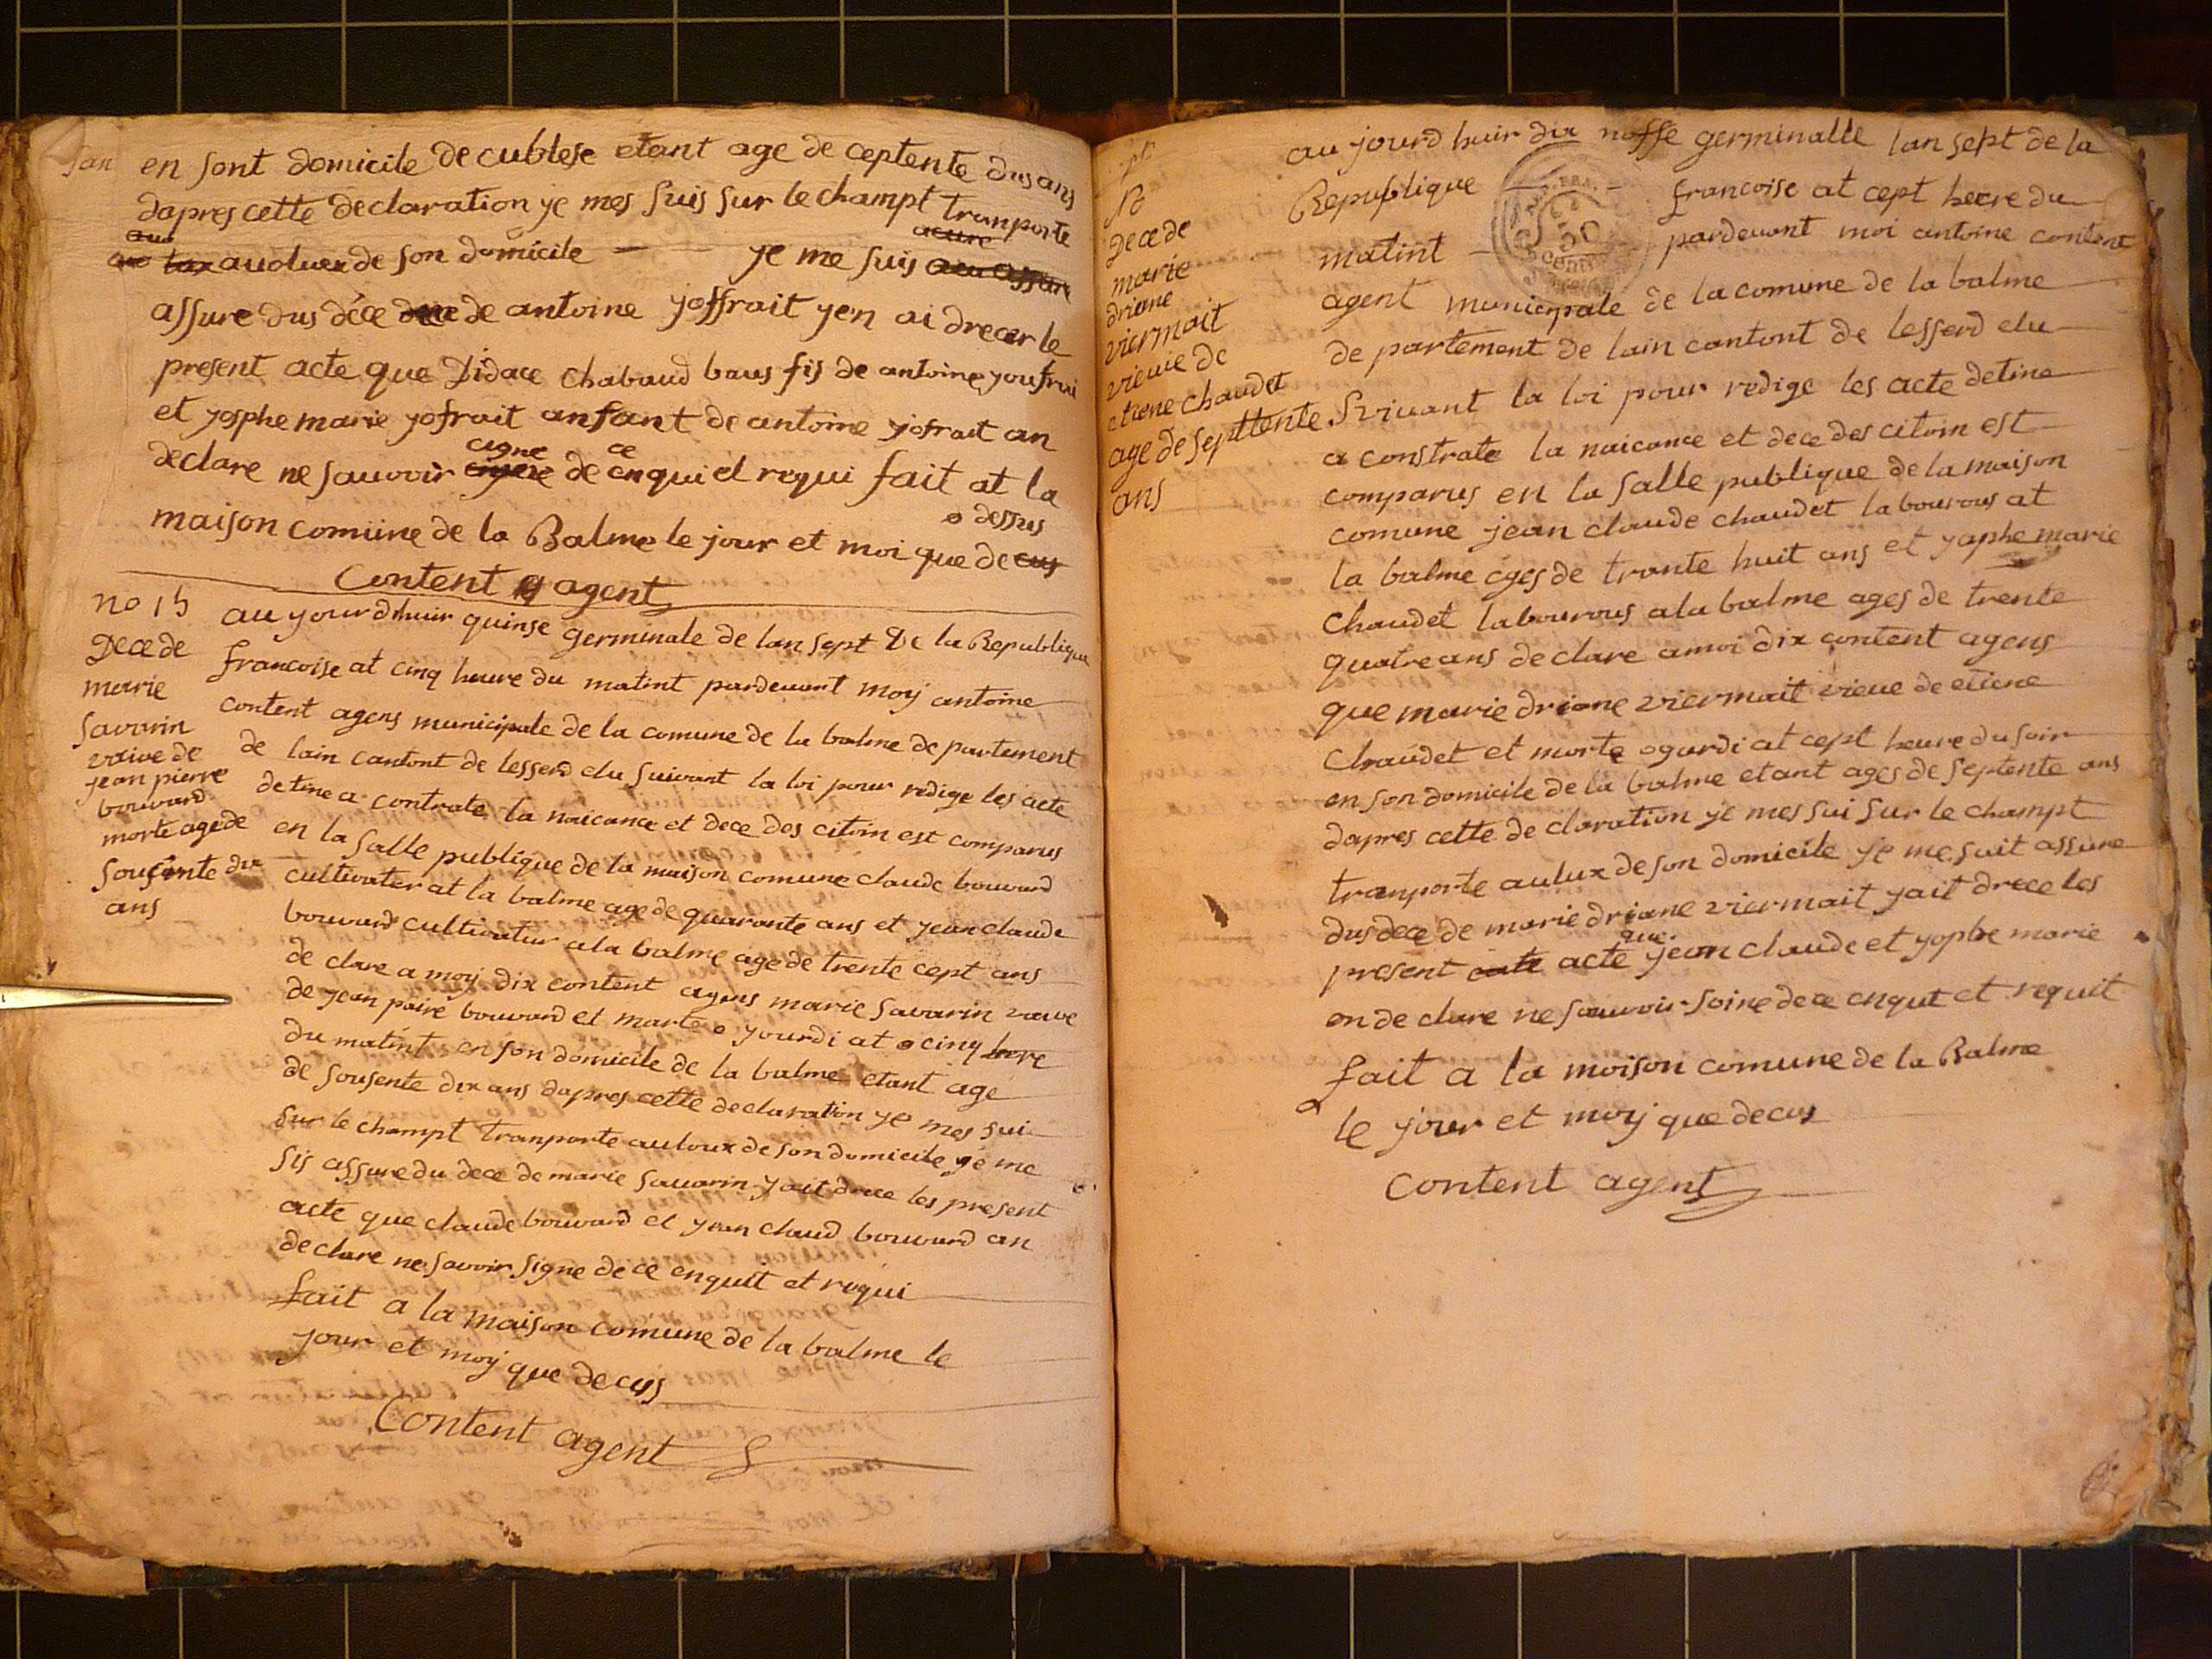 en sont domicile de cublese etant age de ceptente dus ans
dapres cette declaration ye mes suis sur le champt tranporte
auoluex de son domicile ye me suis
assure dus déce de antoine yoffrait yen ai drecer le
present acte que Didace chabaud baus fis de antoine youfrai
et yosphe marie yofrait anfant de antoine yofrait an
declare ne sauvoir cigne de ce enqui el requi fait at la
maison comune de la Balme le jour et moi que de dessus
Content agent
no 15
Decede
marie
Savarin
vaive de
jean pierre
bouvard
morte age de
sousente dix
ans
au yourdhuir quinse germinale de lan sept De la Republique
francoise at cinq heure du matint pardevant moy antoine
content agens municipale de la comune de la balme de partement
de lain cantont de lesserd elu suivant la loi pour redige les acte
detine a contrate la naicance et dece des citoin est comparus
en la salle publique de la maison comune claude bouvard
cultivater at la balme age de quarante ans et jean claude
bouvard cultivatur ala balme age de trente cept ans
de clare a moy dix content agens marie savarin vauve
de jean paire bouvard et marte o yourdi at o cinq here
du matint en son domicile de la balme etant age
de sousente dix ans dapres cette declaration ye mes sui
sur le champt tranporte auloux de son domicile ye me
sis assure du dece de marie savarin yait drece les present
acte que claude bouvard et yean claud bouvard an
declare ne savoir signe de ce enquit et requi
fait a la maison comune de la balme le
jour et moy que decus
Content agent
No
Decede
marie
driane
viermait
vieuie de
etiene chaudet
age de septtente
ans
au jourd huir dix noffe germinalle lan sept de la
Republique francoise at cept heure du
matint pardevant moi antoine content
agent municipale de la comune de la balme
de partement de lain cantont de lesserd elu
suivant la loi pour redige les acte detine
a constrate la naicance et dece des citoin est
comparus en la salle publique de la maison
comune jean claude chaudet labourous at
la balme ages de trante huit ans et yosphe marie
chaudet labourous ala balme ages de trente
quatre ans declare amoi dix content agens
que marie driane viermait vieue de etiene
chaudet et morte ogurdi at cept heure du soir
en son domicile de la balme etant ages de septente ans
dapres cette de claration ye mes sui sur le champt
tranporte aulux de son domicile ye me suit assure
dus dece de marie driane viermait yait drece les
present acte que jean claude et yophe marie
on de clare ne sauvoir soine de ce enqut et requit
fait a la moison comune de la Balme
le jour et moy que decus
content agent